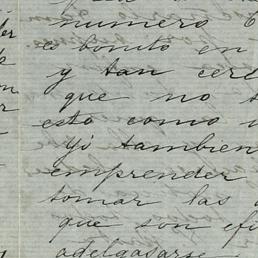 numero
e bonito en
y tan cer
que no s
esto como
Yi tambien
emprender
tomar las
que son efi
adelgasarse